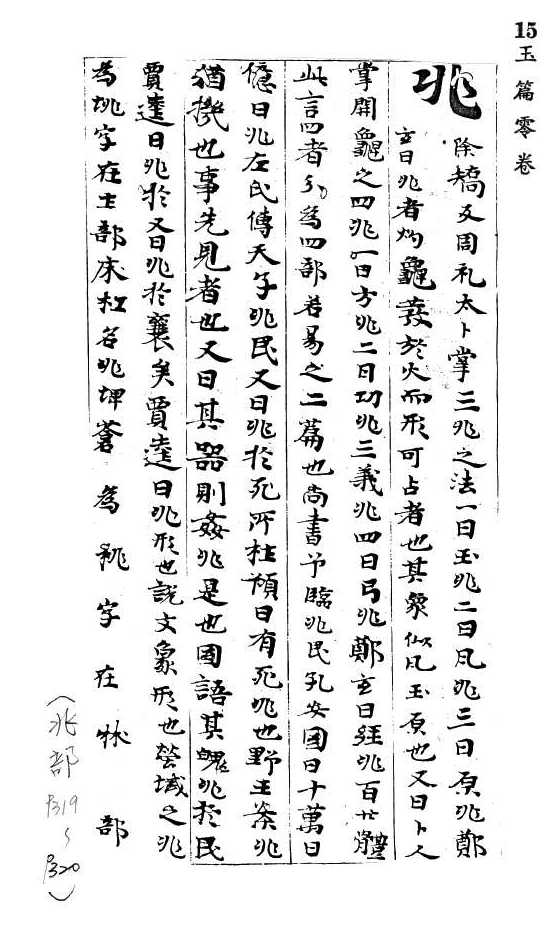 15 玉篇零卷
兆 除矯反周礼太卜掌三兆之法一曰玉兆二曰瓦兆三曰原兆鄭
玄曰兆者灼龜發於火而形可占者也其象似瓦玉原也又曰卜人
掌開龜之四兆一曰方兆二曰功兆三義兆四曰弓兆鄭玄曰經兆百廿體
此言四者分爲四部若易之二篇也尚書予臨兆民孔安國曰十萬曰
億曰兆左氏傳天子兆民又曰兆於死所杜預曰有死兆也野王案兆
猶機也事先見者也又曰其器則姦兆是也國語其魄兆於民
賈逵曰兆於又曰兆於襄矣賈逵曰兆形也說文象形也塋域之兆
為垗字在土部床杠名兆埤蒼為字在部
（兆部
P319
～
P320）